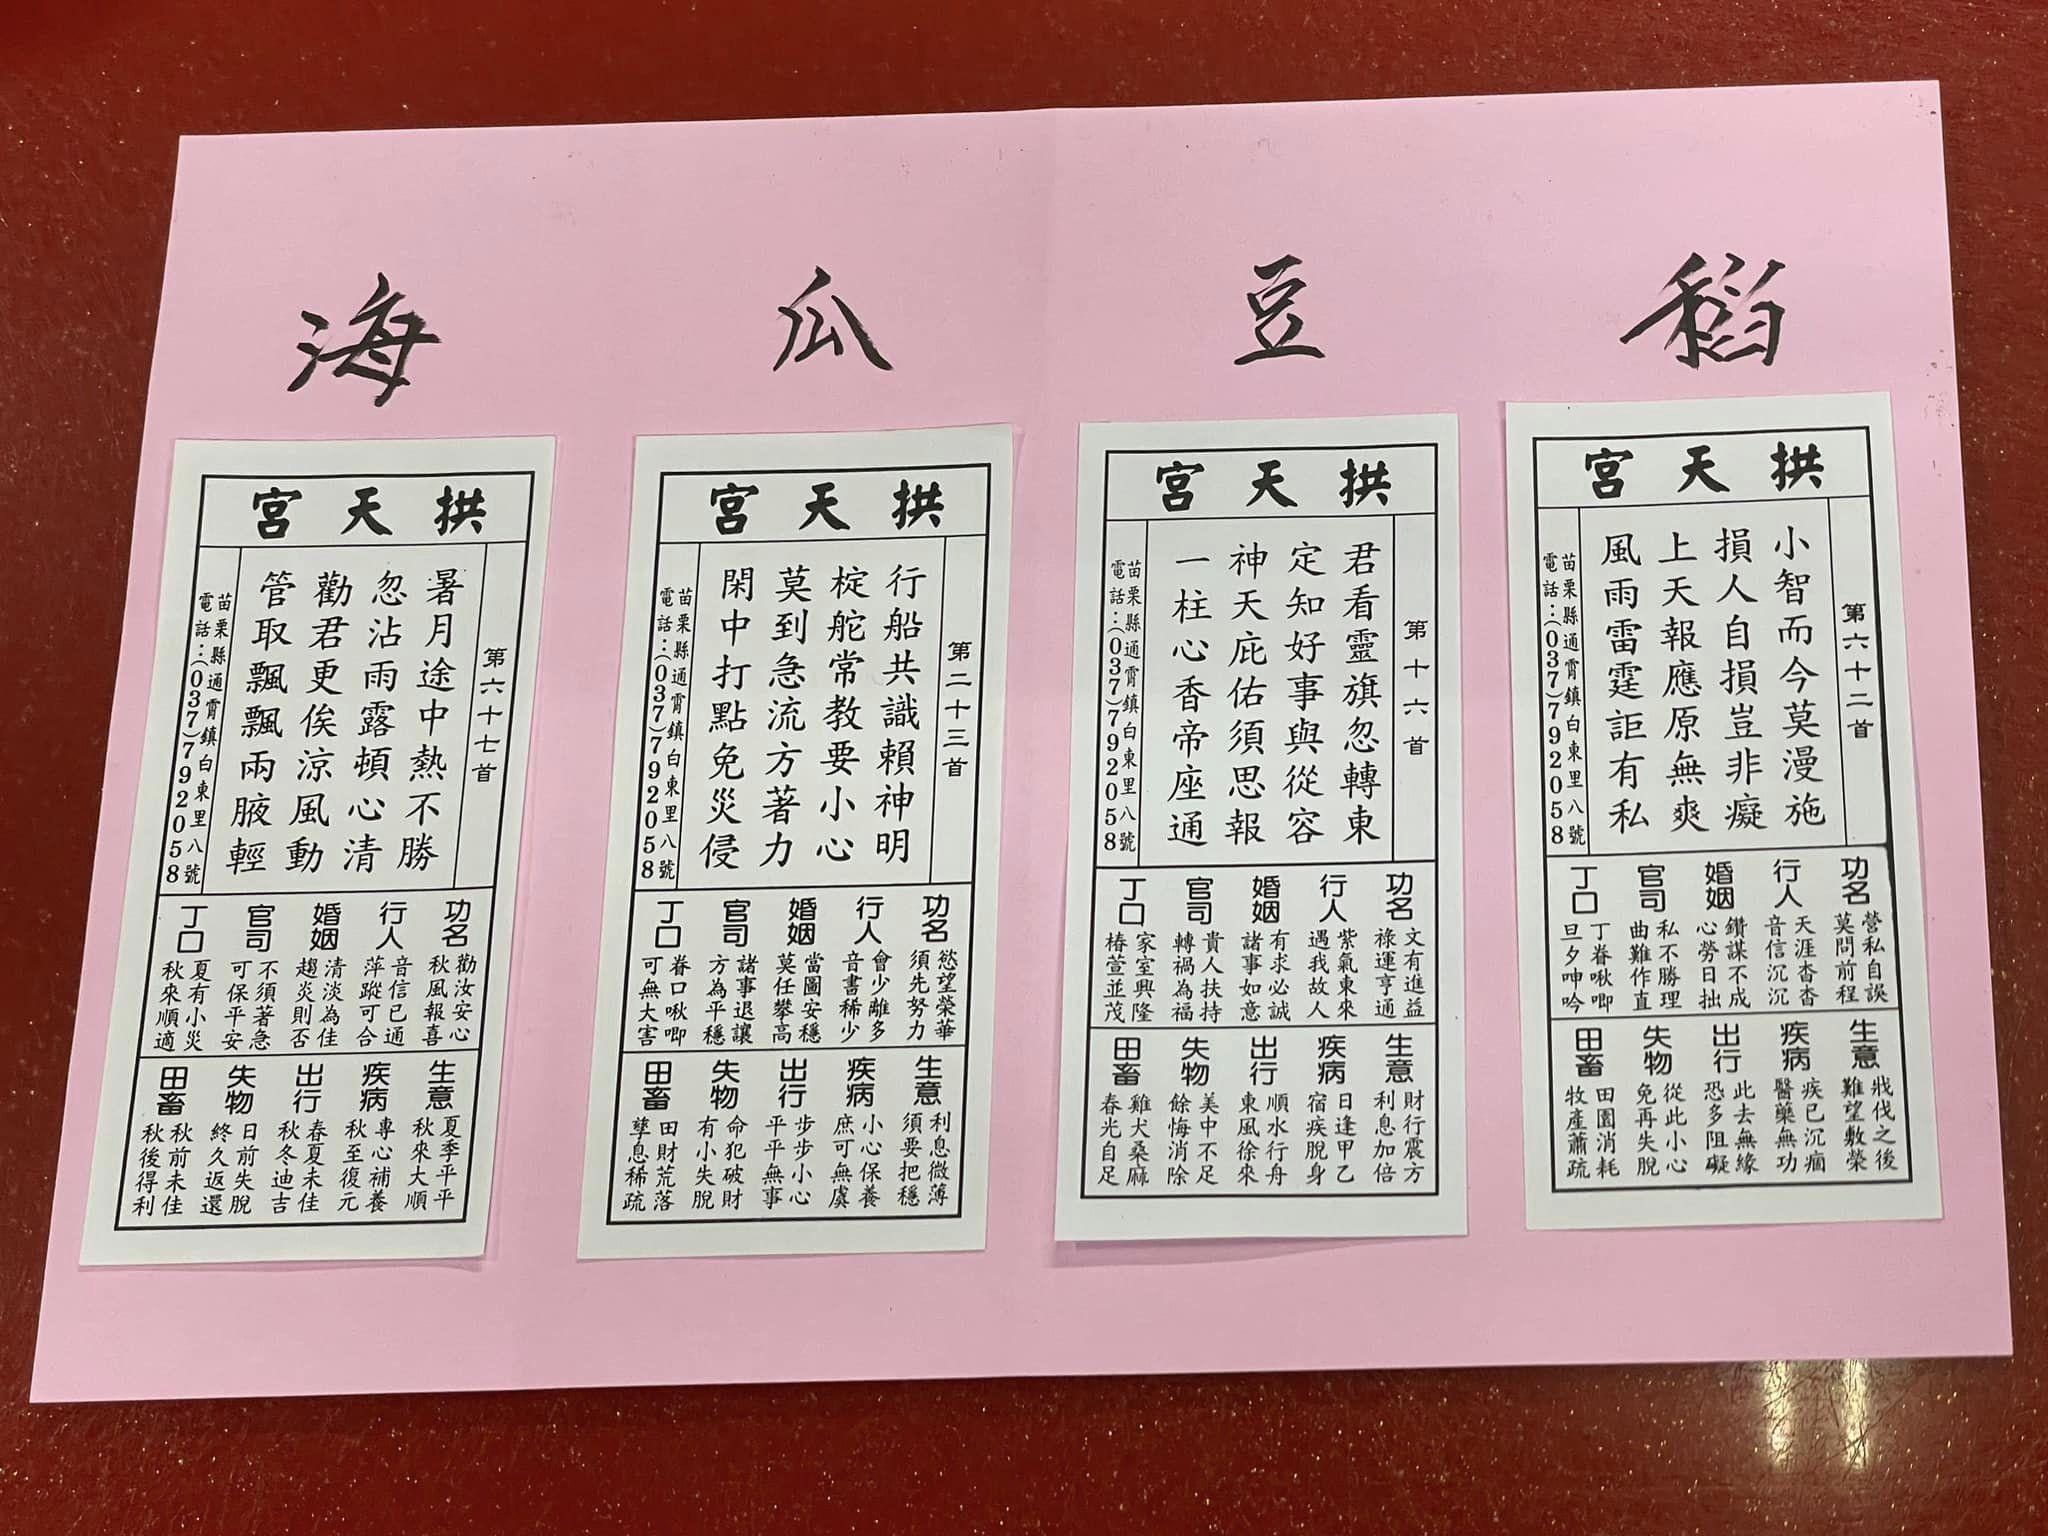 稻
豆
瓜
海
拱天宮
第六十二首
小智而今莫漫施
損人自損豈非癡
上天報應原無爽
風雨雷霆詎有私
苗栗縣通霄鎮白東里八號
電話：(037)792058
功名
營私自誤
莫問前程
行人
天涯杳杳
音信沉沉
婚姻
鑽謀不成
心勞日拙
官司
私不勝理
曲難作直
丁口
丁眷啾唧
旦夕呻吟
生意
戕伐之後
難望敷榮
疾病
疾已沉痼
醫藥無功
出行
此去無緣
恐多阻礙
失物
從此小心
免再失脫
田畜
田園消耗
牧產蕭疏
拱天宮
第十六首
君看靈旗忽轉東
定知好事與從容
神天庇佑須思報
一柱心香帝座通
苗栗縣通霄鎮白東里八號
電話：(037)792058
功名
文有進益
祿運亨通
行人
紫氣東來
遇我故人
婚姻
有求必誠
諸事如意
官司
貴人扶持
轉禍為福
丁口
家室興隆
椿萱並茂
生意
財行震方
利息加倍
疾病
日逢甲乙
宿疾脫身
出行
順水行舟
東風徐來
失物
美中不足
餘悔消除
田畜
雞犬桑麻
春光自足
拱天宮
第二十三首
行船共識賴神明
椗舵常教要小心
莫到急流方著力
閑中打點免災侵
苗栗縣通霄鎮白東里八號
電話：(037)792058
功名
慾望榮華
須先努力
行人
會少離多
音書稀少
婚姻
當圖安穩
莫任攀高
官司
諸事退讓
方為平穩
丁口
眷口啾唧
可無大害
生意
利息微薄
須要把穩
疾病
小心保養
庶可無虞
出行
步步小心
平平無事
失物
命犯破財
有小失脫
田畜
田財荒落
孳息稀疏
拱天宮
第六十七首
暑月途中熱不勝
忽沾雨露頓心清
勸君更俟涼風動
管取飄飄兩腋輕
苗栗縣通霄鎮白東里八號
電話：(037)792058
功名
勸汝安心
秋風報喜
行人
音信已通
萍蹤可合
婚姻
清淡為佳
趨炎則否
官司
不須著急
可保平安
丁口
夏有小災
秋來順適
生意
夏季平平
秋來大順
疾病
專心補養
秋至復元
出行
春夏未佳
秋冬迪吉
失物
日前失脫
終久返還
田畜
秋前未佳
秋後得利